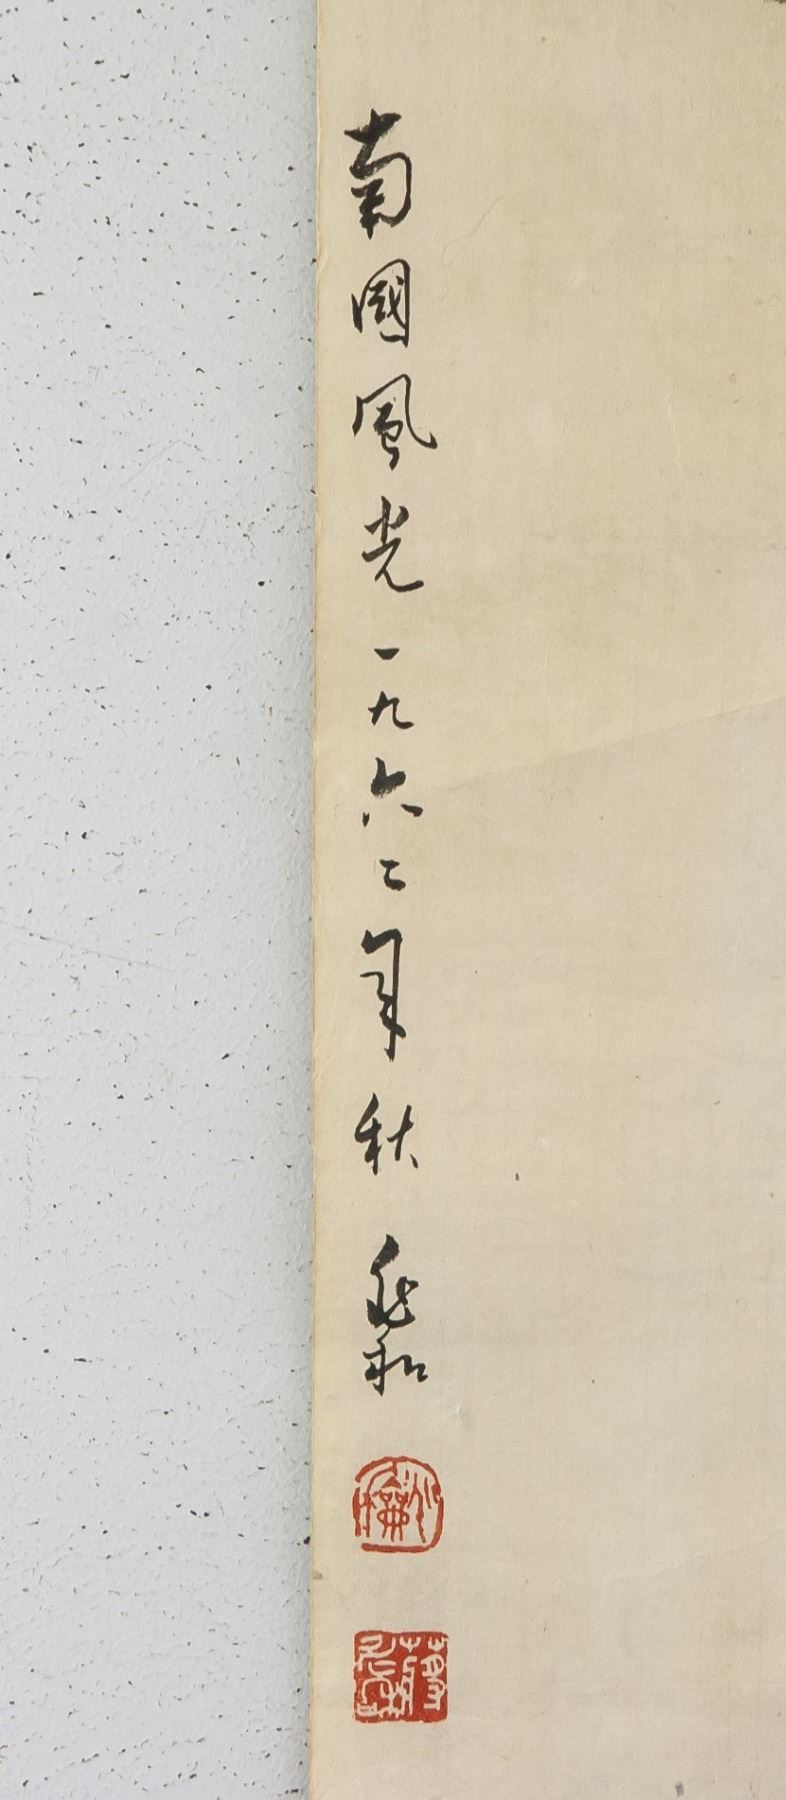 南國風光一九六二年秋兆和